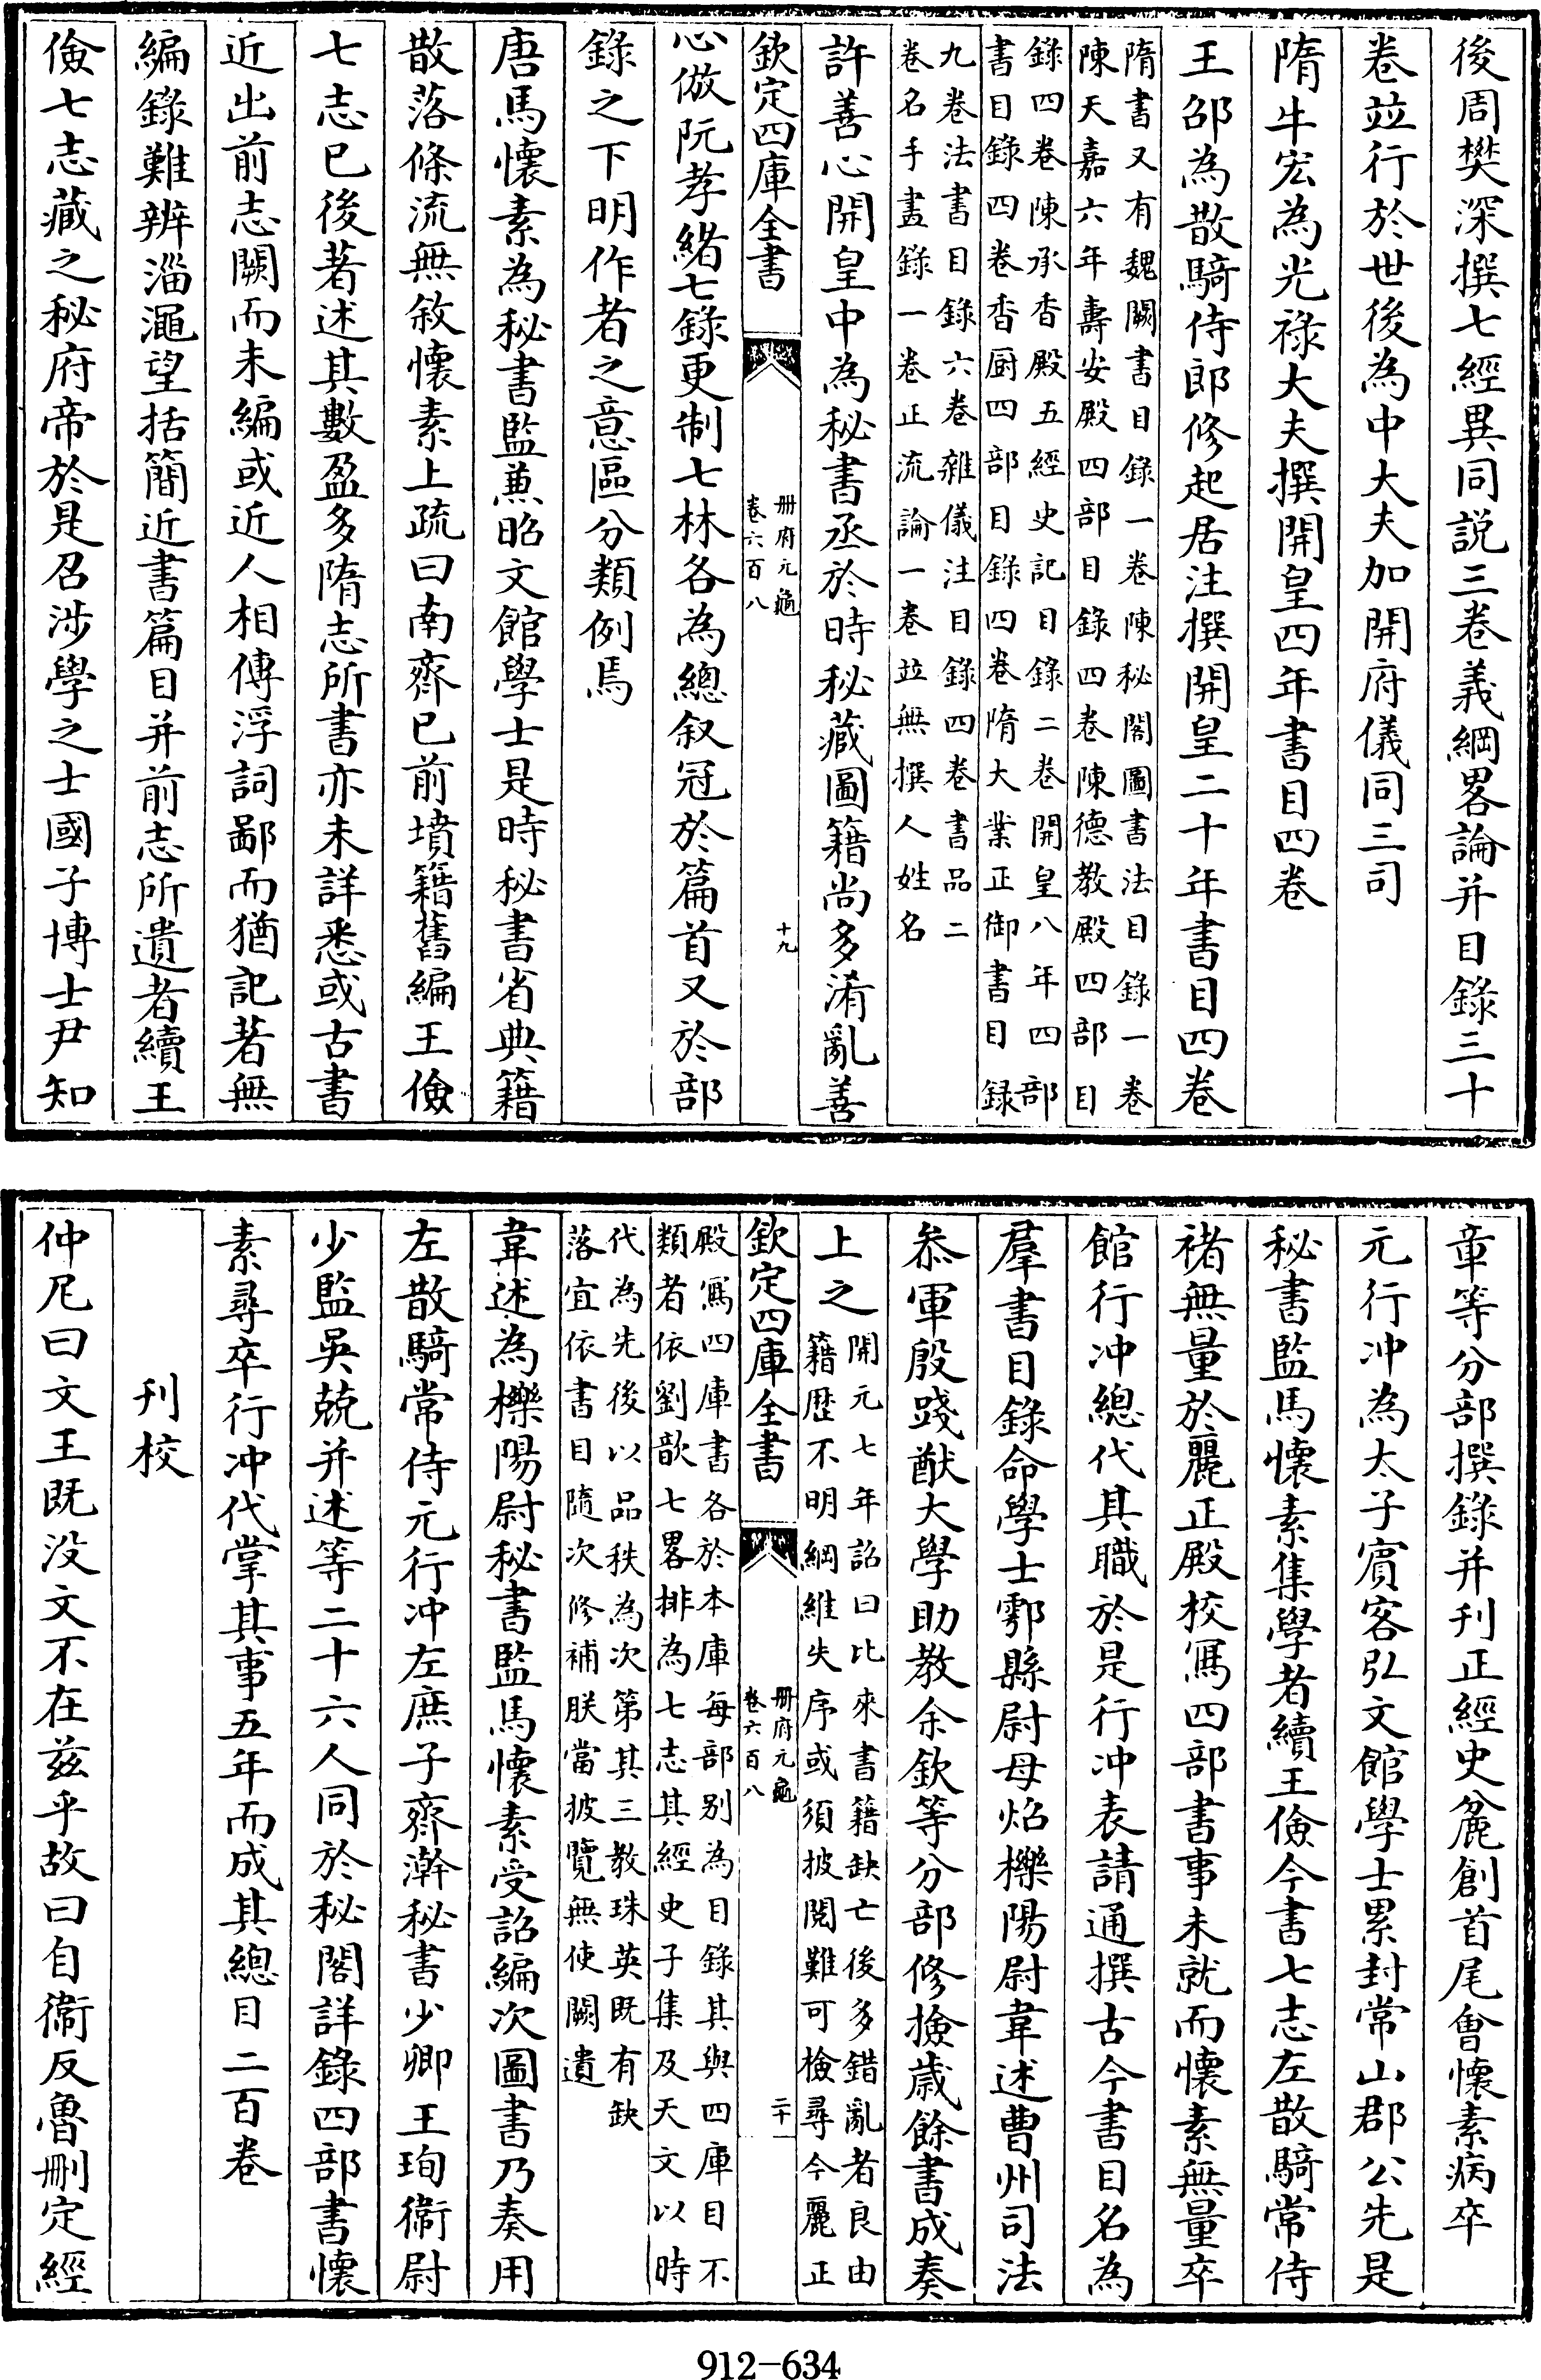 後周樊深撰七經異同説三卷義綱畧論并目錄三十
卷竝行於世後為中大夫加開府儀同三司
隋牛宏為光祿大夫撰開皇四年書目四卷
王邵為散騎侍郎修起居注撰開皇二十年書目四卷
隋書又有魏闕書目錄一卷陳秘閣圖書法目錄一卷
陳天嘉六年壽安殿四部目錄四卷陳德教殿四部目
錄四卷陳承香殿五經史記目錄二卷開皇八年四部
書目錄四卷香厨四部目錄四卷隋大業正御書目錄
九卷法書目錄六卷雜儀注目錄四卷書品二
卷名手畫錄一卷正流論一卷竝無撰人姓名
許善心開皇中為秘書丞於時秘藏圖籍尚多淆亂善
欽定四庫全書
冊府元龜
卷六百八
十九
心倣阮孝緒七錄更制七林各為總叙冠於篇首又於部
錄之下明作者之意區分類例焉
唐馬懷素為秘書監兼昭文館學士是時秘書省典籍
散落條流無敘懷素上疏曰南齊已前墳籍舊編王儉
七志已後著述其數盈多隋志所書亦未詳悉或古書
近出前志闕而未編或近人相傳浮詞鄙而猶記著無
編錄難辨淄澠望括簡近書篇目并前志所遺者續王
儉七志藏之秘府帝於是召涉學之士國子博士尹知
章等分部撰錄并刊正經史麄創首尾會懷素病卒
元行冲為太子賓客弘文館學士累封常山郡公先是
秘書監馬懷素集學者續王儉今書七志左散騎常侍
褚無量於麗正殿校寫四部書事未就而懷素無量卒
館行冲總代其職於是行冲表請通撰古今書目名為
羣書目錄命學士鄠縣尉毋煚櫟陽尉韋述曹州司法
叅軍殷踐猷大學助教余欽等分部修撿歲餘書成奏
上之
開元七年詔曰比來書籍缺亡後多錯亂者良由
籍歴不明綱維失序或須披閱難可檢尋今麗正
欽定四庫全書
冊府元龜
卷六百八
二十一
殿寫四庫書各於本庫每部别為目錄其與四庫目不
類者依劉歆七畧排為七志其經史子集及天文以時
代為先後以品秩為次第其三教珠英既有缺
落宜依書目隨次修補朕當披覽無使闕遺
韋述為櫟陽尉秘書監馬懷素受詔編次圖書乃奏用
左散騎常侍元行冲左庶子齊澣秘書少卿王珣衞尉
少監吳兢并述等二十六人同於秘閣詳錄四部書懷
素尋卒行冲代掌其事五年而成其總目二百卷
刊校
仲尼曰文王既没文不在兹乎故曰自衞反魯刪定經
912-634